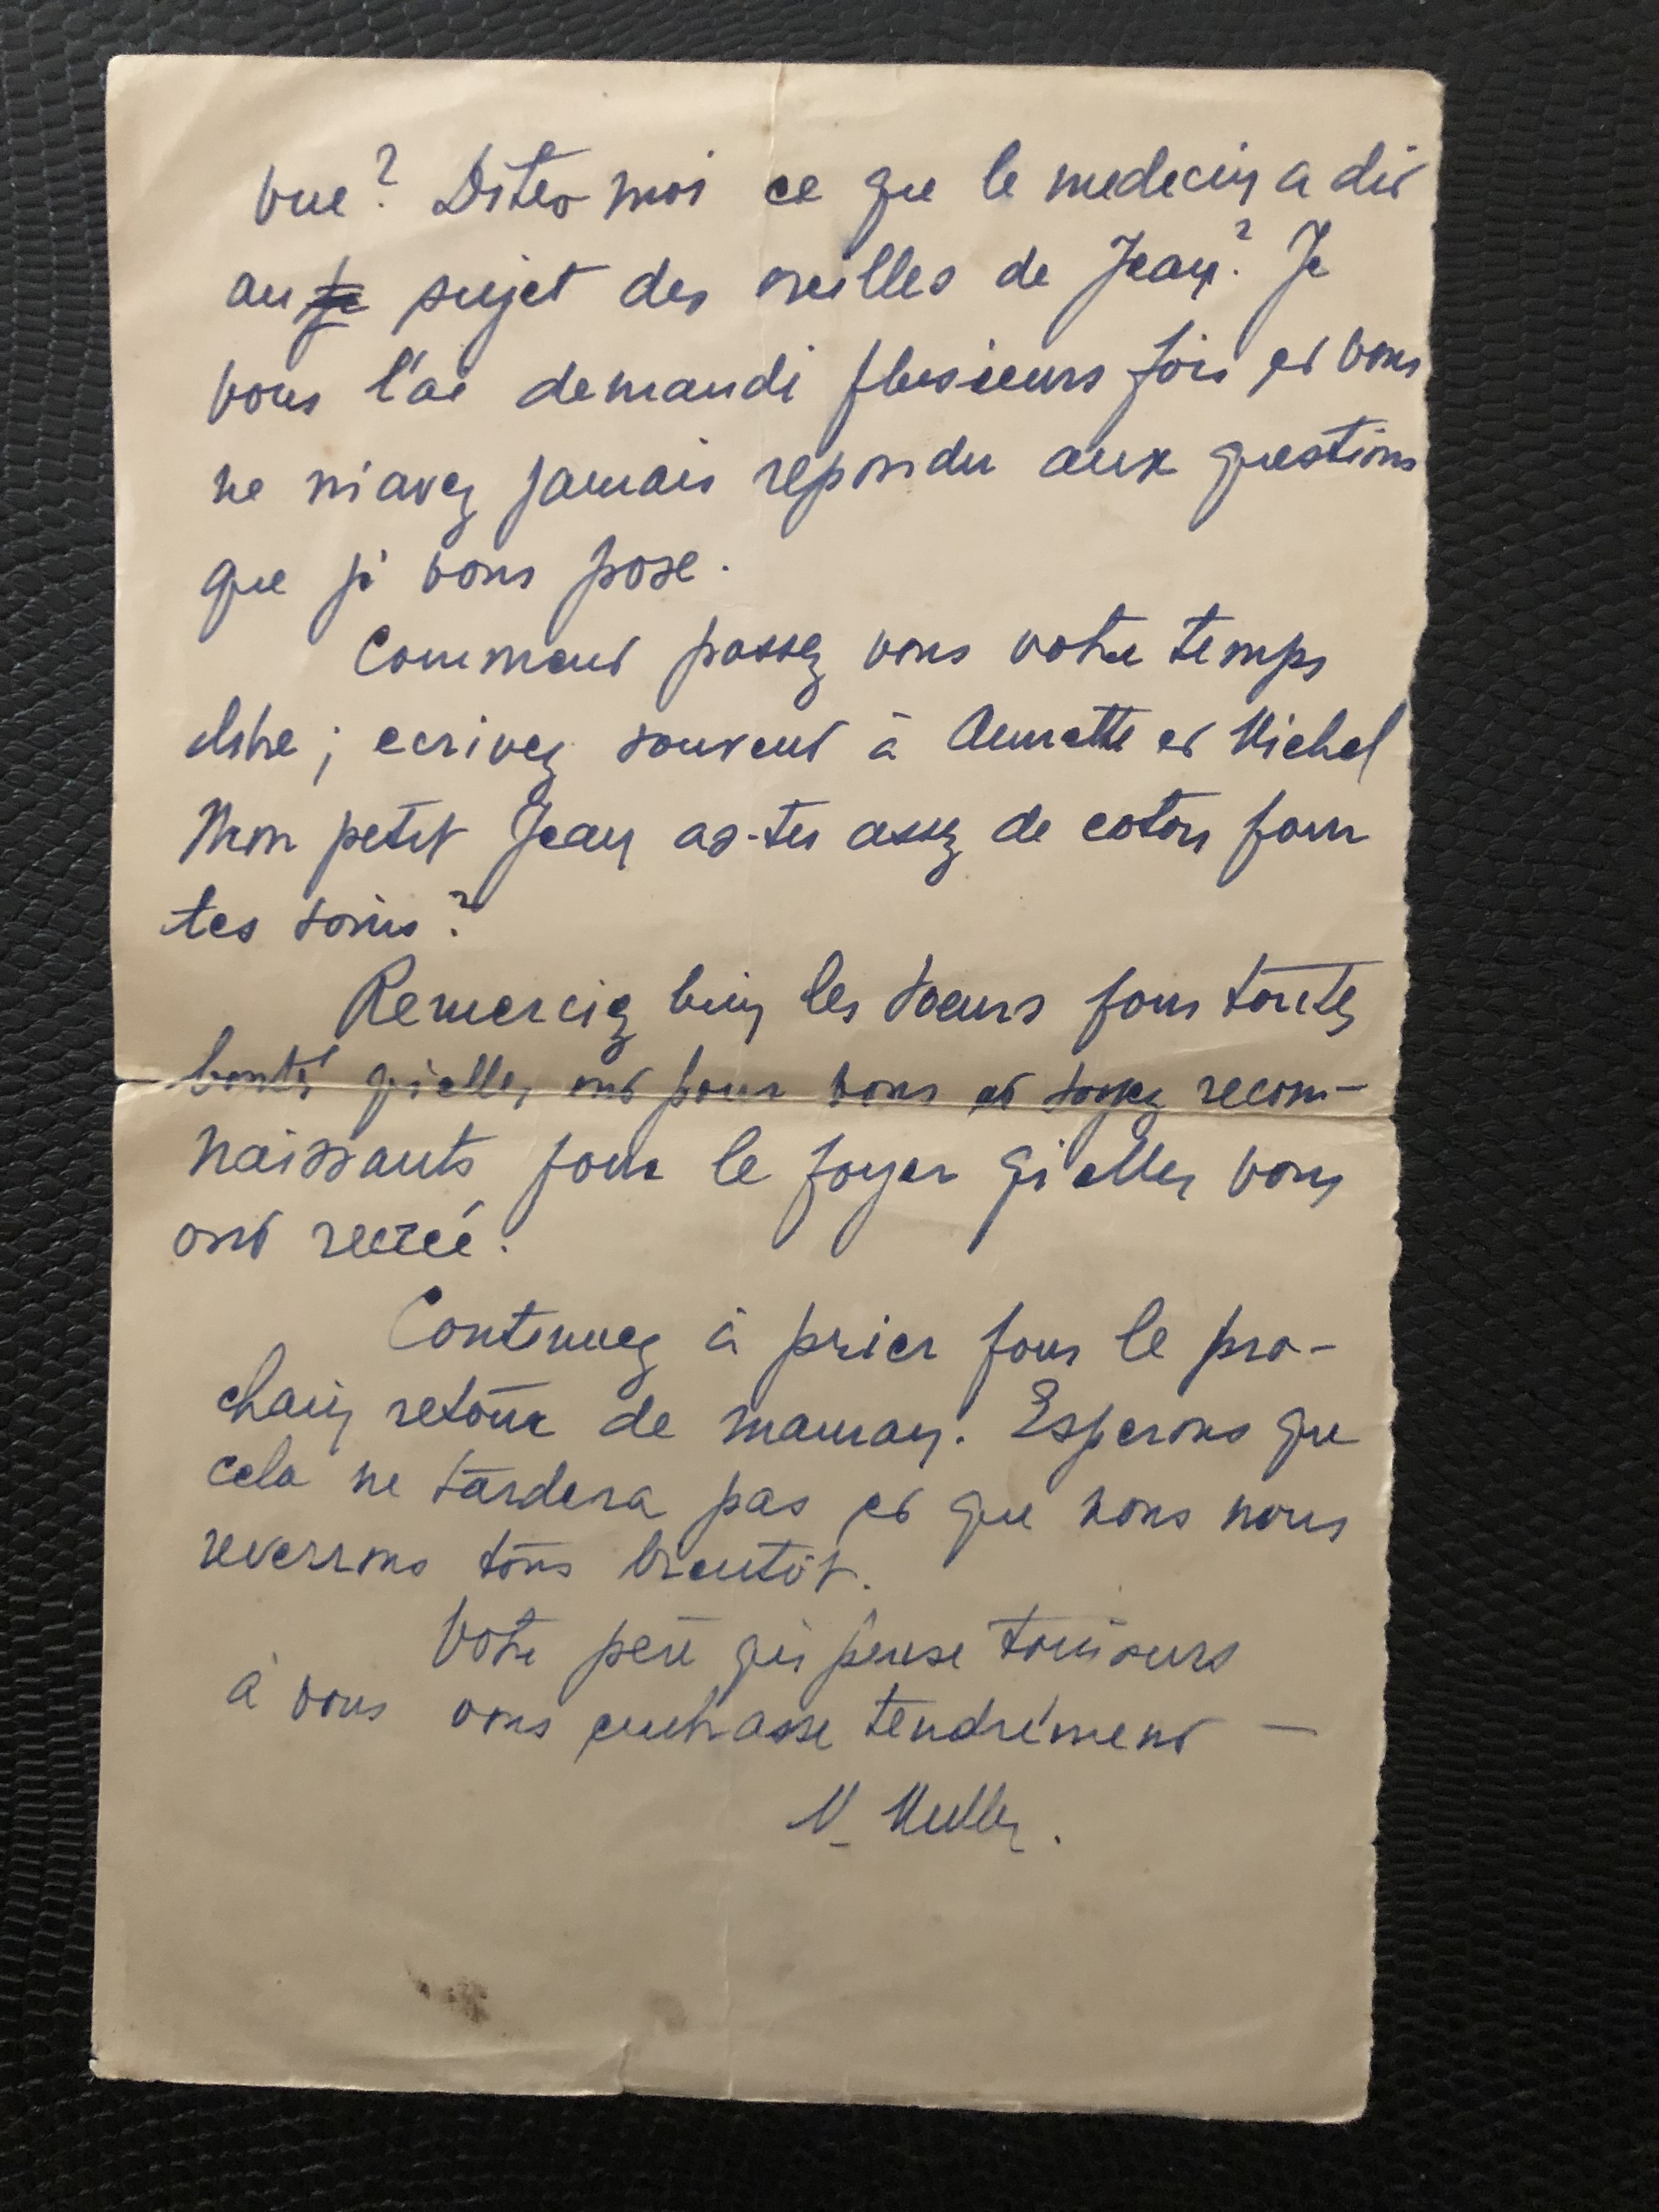 vue? Dites moi ce que le medecin a dit
au sujet des oreilles de Jean? Je
vous l'ai demandé plusieurs fois et vous
ne m'avez jamais repondu aux questions
que je vous pose.
Comment passez vous votre temps
libre; ecrivez souvent à Annette et Michel
Mon petit Jean as-tu assez de coton pour
tes soins?
Remerciez bien les soeurs pour toutes
bonté qu'elles ont pour vous et soyez recon-
naissants pour le foyer qu'elles vous
ont recréé.
Continuez à prier pour le pro-
chain retour de maman. Esperons que
cela ne tardera pas et que nous nous
reverrons tous bientôt.
Votre père qui pense toujours
à vous vous embrasse tendrement —